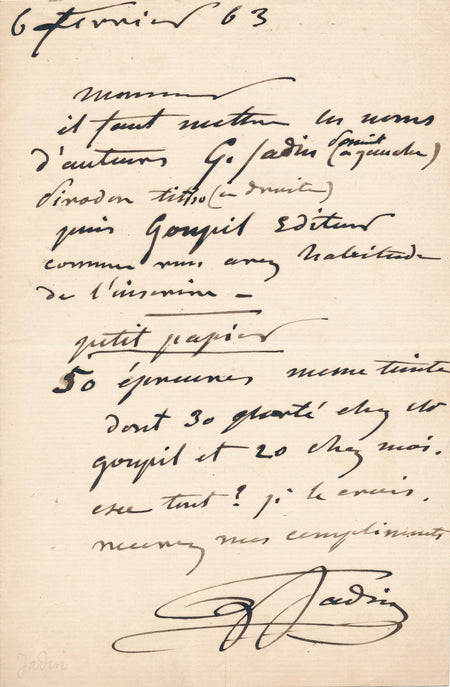 6 fevrier 63
Monsieur
il faut mettre les noms
d'auteurs G. Jadin pinxit (a gauche)
Sirodon litho (a droite)
puis Goupil Editeur
comme vous avez habitude
de l'inscrire –
petit papier
50 épreuves meme teinte
dont 30 porté chez
goupil et 20 chez moi.
esce tout? je le crois.
recevez mes compliments
G Jadin
Jadin